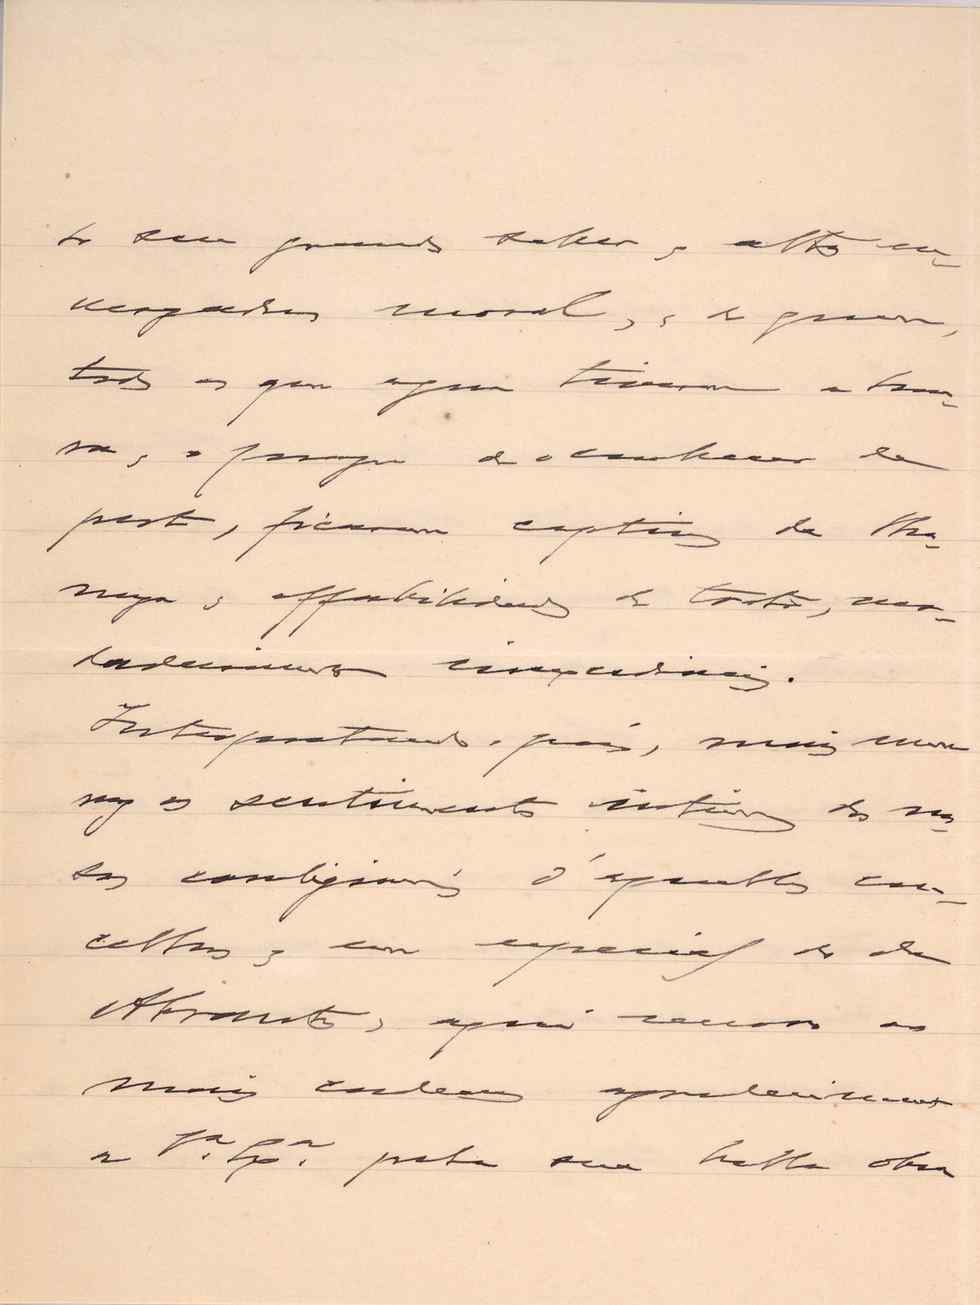 do seu grande saber, e alta en-
vergadura moral, e de quem,
todos os que agora tiveram a hon-
ra, e o prazer de o conhecer de
perto, ficaram captivos da lha-
neza e affabilidade de tracto, ver-
dadeiramente
Interpretando, pois, mais uma
vez os sentimentos intimos dos nos-
sos d'aquelles con-
celhos, e em especial do de
Abrantes, aqui renovo os
mais cordeaes agradecimentos
a V.ª Ex.ª pela sua bella obra